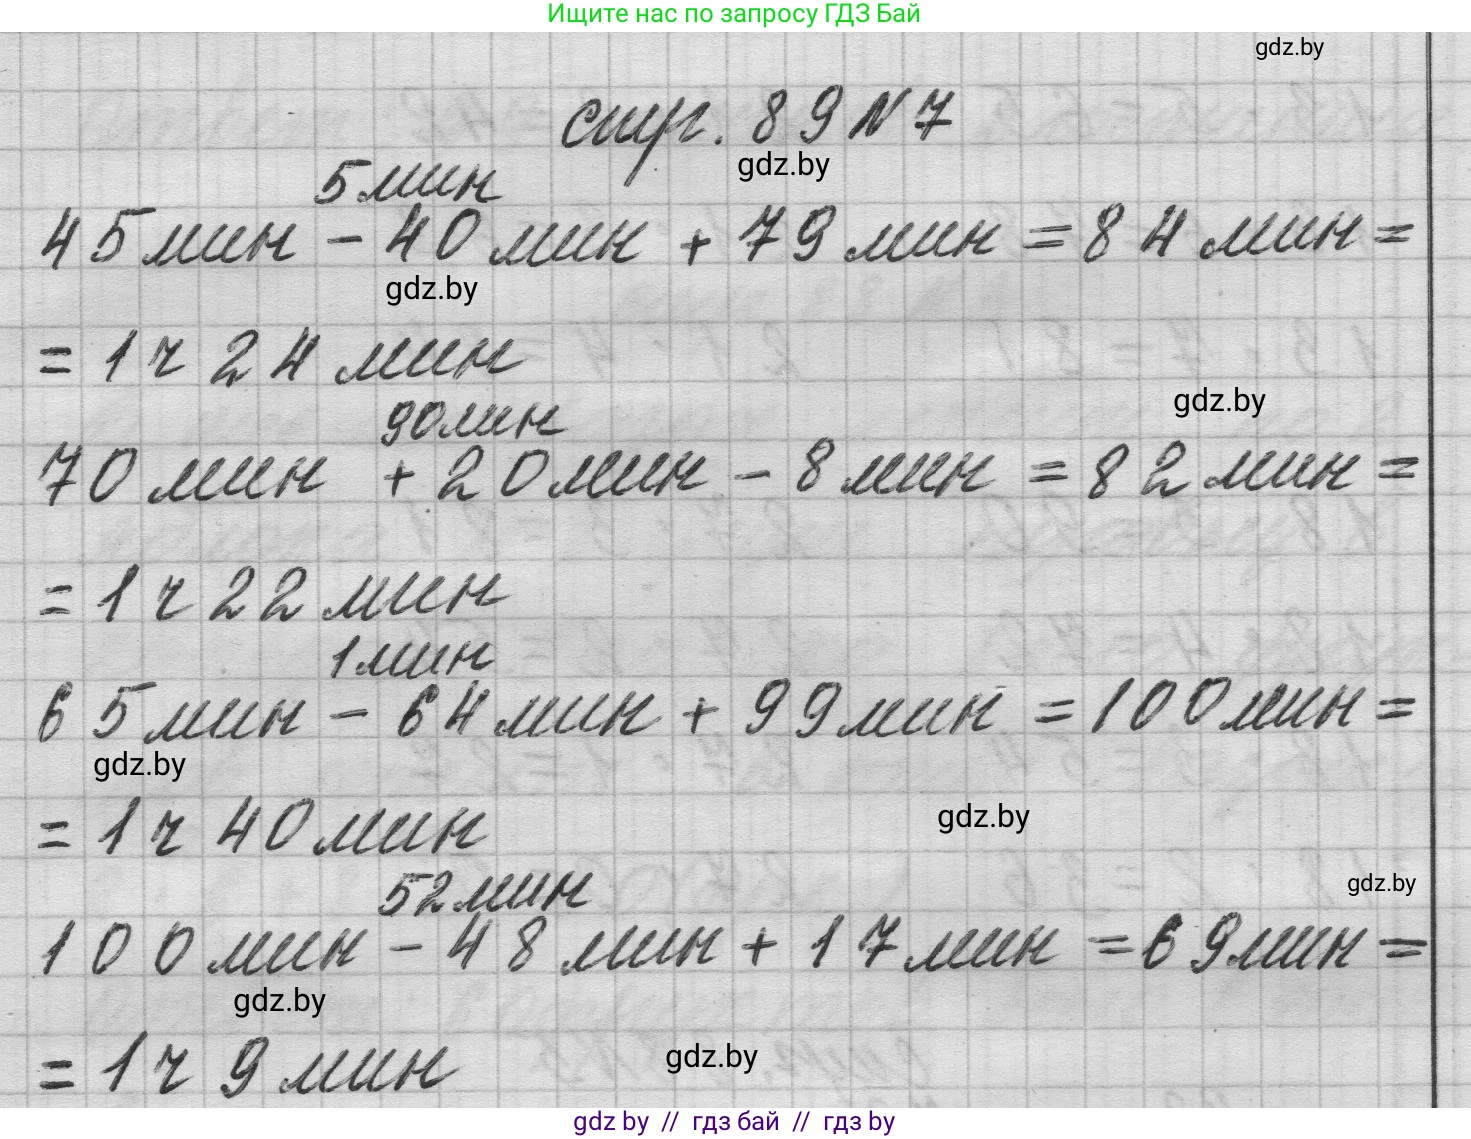 Ищите нас по запросу ГДЗ Бай
gdz.by
стр. 89 N 7
gdz.by
5 мин
45 мин - 40 мин + 79 мин = 84 мин =
gdz.by
= 1 ч 24 мин
gdz.by
90 мин
70 мин + 20 мин - 8 мин = 82 мин =
= 1 ч 22 мин
1 мин
65 мин - 64 мин + 99 мин = 100 мин =
gdz.by
= 1 ч 40 мин
gdz.by
52 мин
gdz.by
100 мин - 48 мин + 17 мин = 69 мин =
gdz.by
= 1 ч 9 мин
gdz.by
gdz by // гдз бай // гдз by